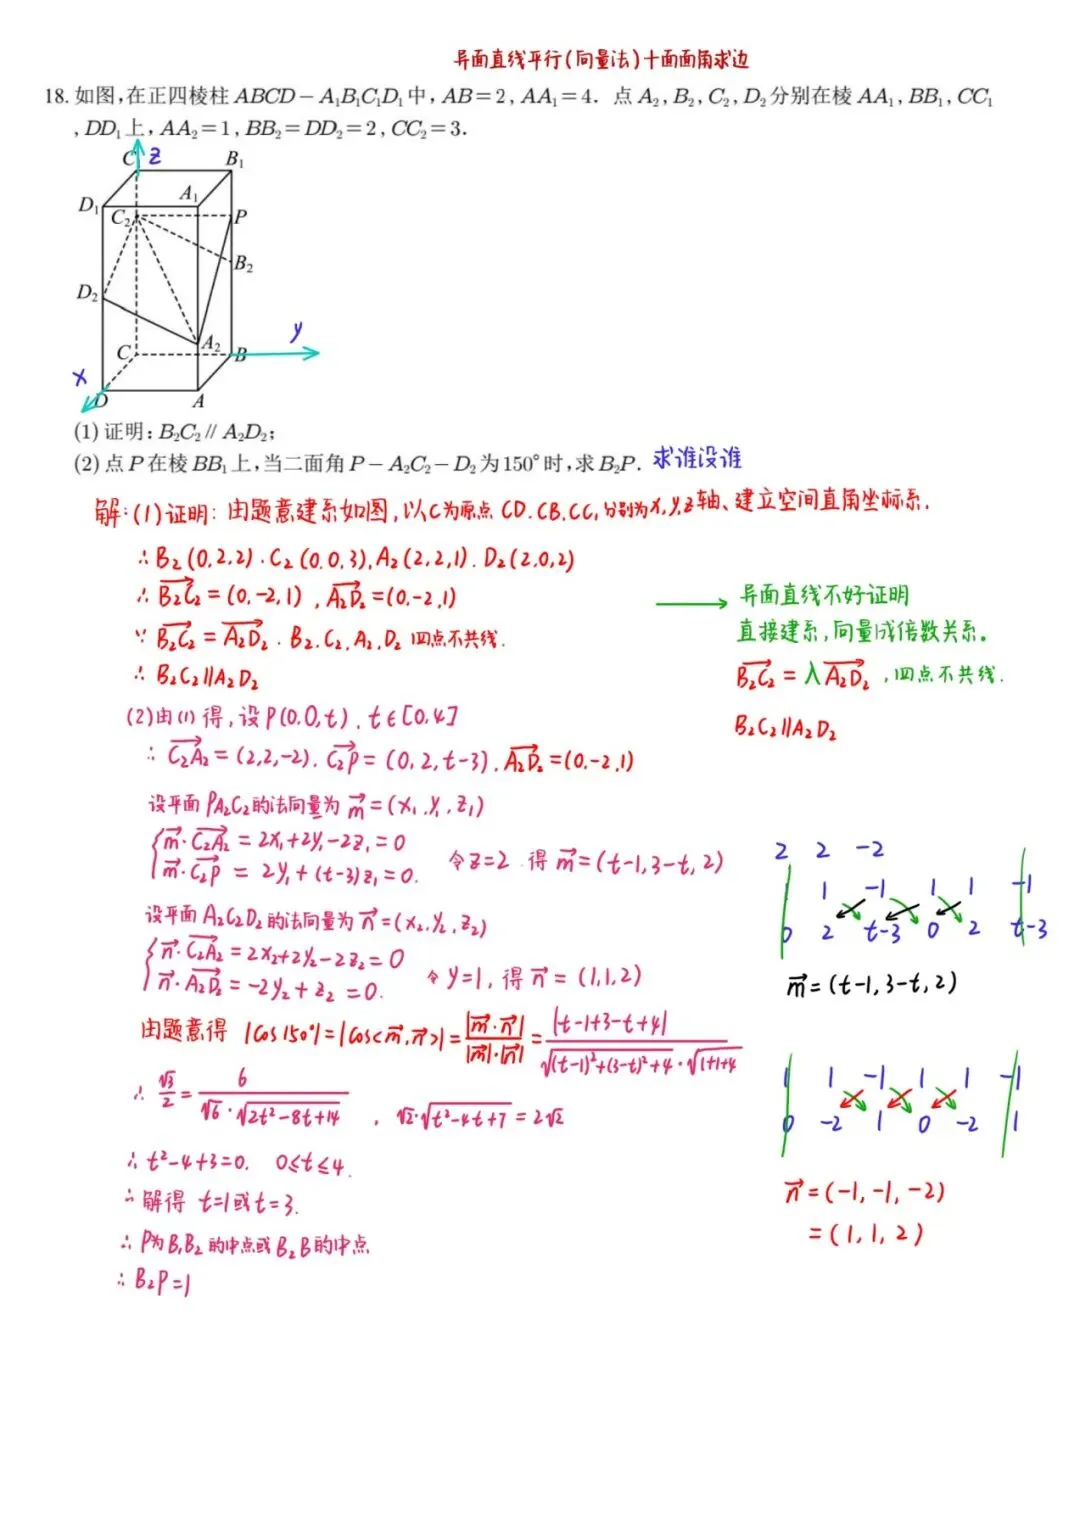 异面直线平行(向量法)十面面角求边
18. 如图,在正四棱柱 ABCD－A₁B₁C₁D₁ 中, AB＝2, AA₁＝4. 点 A₂, B₂, C₂, D₂ 分别在棱 AA₁, BB₁, CC₁
, DD₁ 上, AA₂＝1, BB₂＝DD₂＝2, CC₂＝3.
C z B₁
D₁ A₁
C₂ P
B₂
D₂
A₂ y
C B
x
D A
(1) 证明: B₂C₂ // A₂D₂;
(2) 点 P 在棱 BB₁ 上, 当二面角 P－A₂C₂－D₂ 为 150° 时, 求 B₂P. 求谁设谁
解: (1) 证明: 由题意建系如图, 以C为原点 CD. CB. CC₁ 分别为x, y, z轴、建立空间直角坐标系.
∴ B₂(0,2,2). C₂(0,0,3), A₂(2,2,1). D₂(2,0,2)
∴ B₂C₂→ = (0,-2,1), A₂D₂→ = (0,-2,1)
→ 异面直线不好证明
直接建系, 向量成倍数关系。
∵ B₂C₂→ = A₂D₂→. B₂. C₂. A₂. D₂ 四点不共线.
B₂C₂→ = λA₂D₂→, 四点不共线.
∴ B₂C₂ // A₂D₂
B₂C₂ // A₂D₂
(2) 由(1)得, 设P(0,0,t). t∈[0,4]
∴ C₂A₂→ = (2,2,-2). C₂P→ = (0,2,t-3). A₂D₂→ = (0,-2,1)
设平面PA₂C₂的法向量为 m→ = (x₁, y₁, z₁)
{ m→·C₂A₂→ = 2x₁+2y₁-2z₁ = 0
m→·C₂P→ = 2y₁+(t-3)z₁ = 0.
令z=2. 得 m→ = (t-1, 3-t, 2)
2 2 -2
1 -1 1 1 -1
0 2 t-3 0 2 t-3
m→ = (t-1, 3-t, 2)
设平面A₂C₂D₂的法向量为 n→ = (x₂, y₂, z₂)
{ n→·C₂A₂→ = 2x₂+2y₂-2z₂ = 0
n→·A₂D₂→ = -2y₂+z₂ = 0.
令y=1, 得 n→ = (1,1,2)
由题意得 |cos150°| = |cos<m→, n→>| = |m→·n→| / |m→|·|n→| = |t-1+3-t+4| / √((t-1)²+(3-t)²+4)·√(1+1+4)
∴ √3/2 = 6 / √6·√(2t²-8t+14), √2·√(t²-4t+7) = 2√2
1 1 -1 1 1 -1
0 -2 1 0 -2 1
∴ t²-4+3=0. 0≤t≤4.
∴ 解得 t=1或t=3.
n→ = (-1, -1, -2)
= (1, 1, 2)
∴ P为B₁B₂的中点或B₂B的中点
∴ B₂P=1